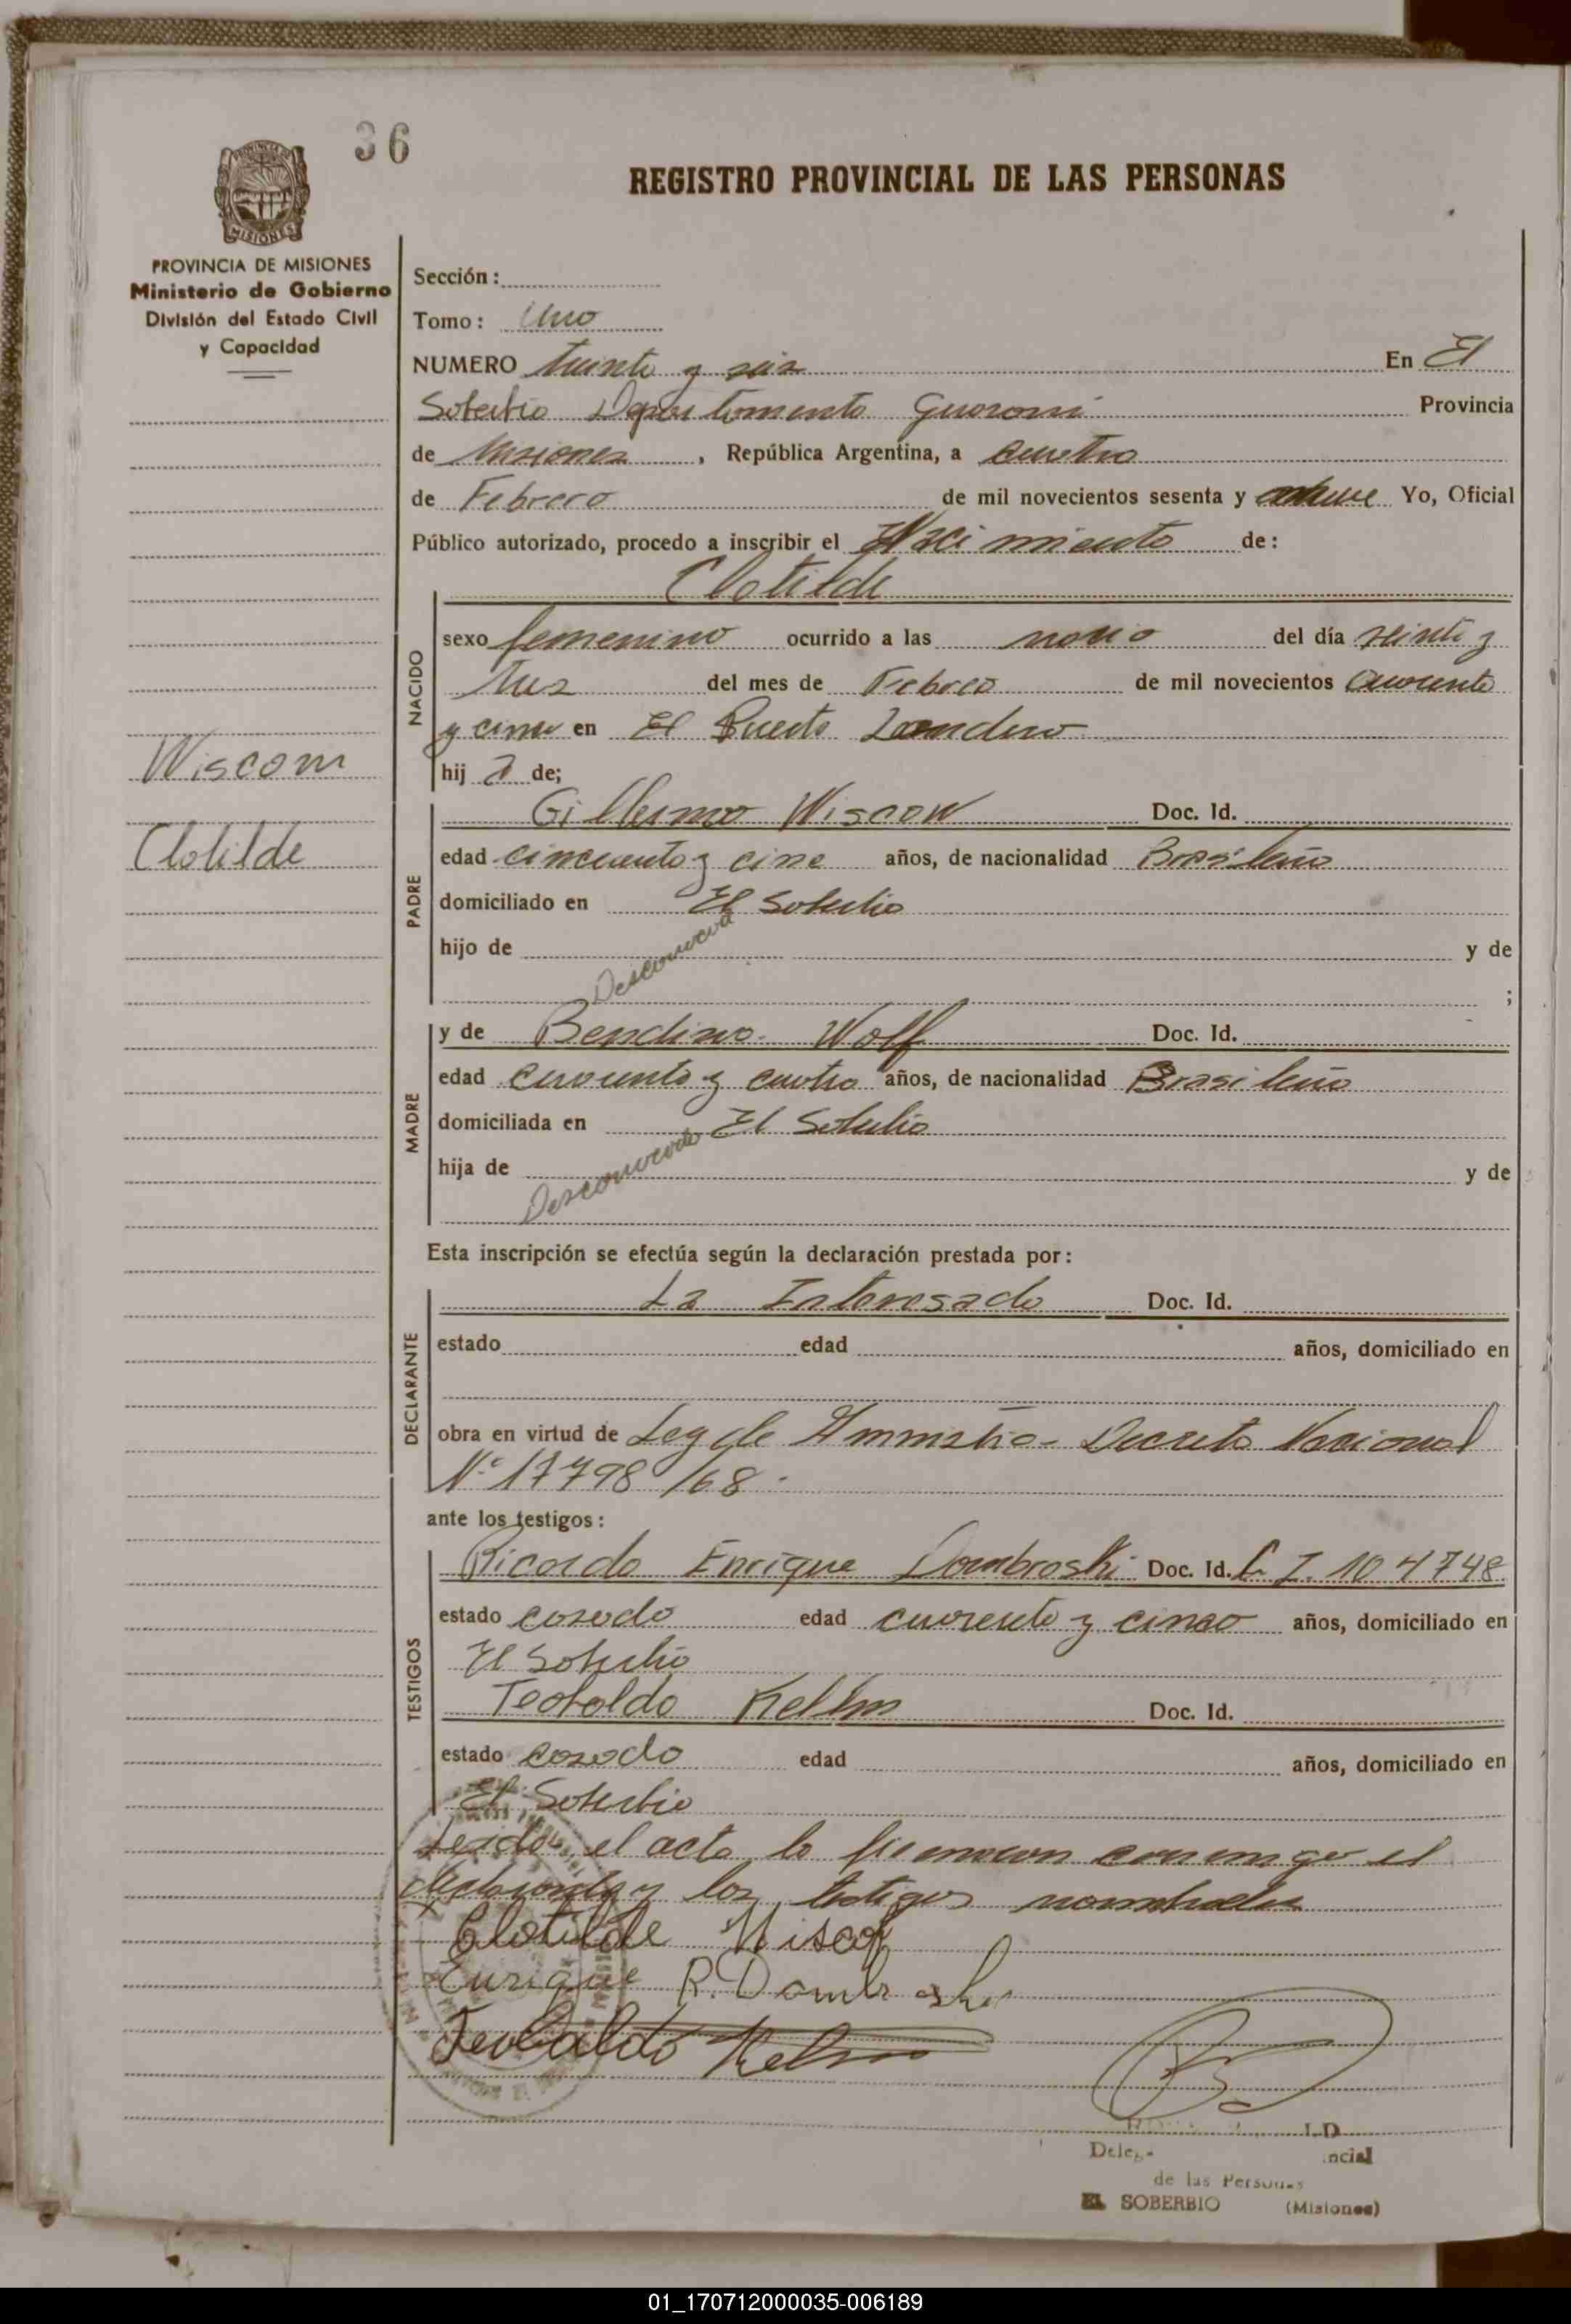 36
REGISTRO PROVINCIAL DE LAS PERSONAS
PROVINCIA DE MISIONES
Ministerio de Gobierno
División del Estado Civil
y Capacidad
Sección:
Tomo: Uno
NUMERO treinta y seis En El
Soberbio Departamento Guarani Provincia
de Misiones, República Argentina, a cuatro
de Febrero de mil novecientos sesenta y nueve Yo, Oficial
Público autorizado, procedo a inscribir el Nacimiento de:
Clotilde
NACIDO
sexo femenino ocurrido a las del día veinte y
tres del mes de Febrero de mil novecientos cuarenta
y cinco en El Puerto Londero
hija de;
Wiscom
Clotilde
PADRE
Gillermo Wiscow Doc. Id.
edad cincuenta y cinco años, de nacionalidad Brasileño
domiciliado en El Soberbio
hijo de y de
;
MADRE
y de Bendina Wolf Doc. Id.
edad cuarenta y cuatro años, de nacionalidad Brasileña
domiciliada en El Soberbio
hija de Desconocido y de
Esta inscripción se efectúa según la declaración prestada por:
DECLARANTE
La Interesada Doc. Id.
estado edad años, domiciliado en
obra en virtud de Ley de Amnistia - Decreto Nacional
Nº 17798/68.
ante los testigos:
TESTIGOS
Ricardo Enrique Dombroski Doc. Id. C. I. 104748
estado casado edad cuarenta y cinco años, domiciliado en
El Soberbio
Teobaldo Kelhm Doc. Id.
estado casado edad años, domiciliado en
El Soberbio
Leida el acta la firmaron conmigo el
y los testigos nombrados
Clotilde Wiscof
Enrique R. Dombroski
Teobaldo Kelm
de las Personas
EL SOBERBIO (Misiones)
01_170712000035-006189